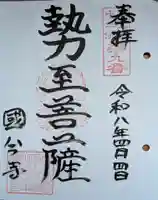 奉拝
令和八年四月四日
勢至菩薩
國分寺